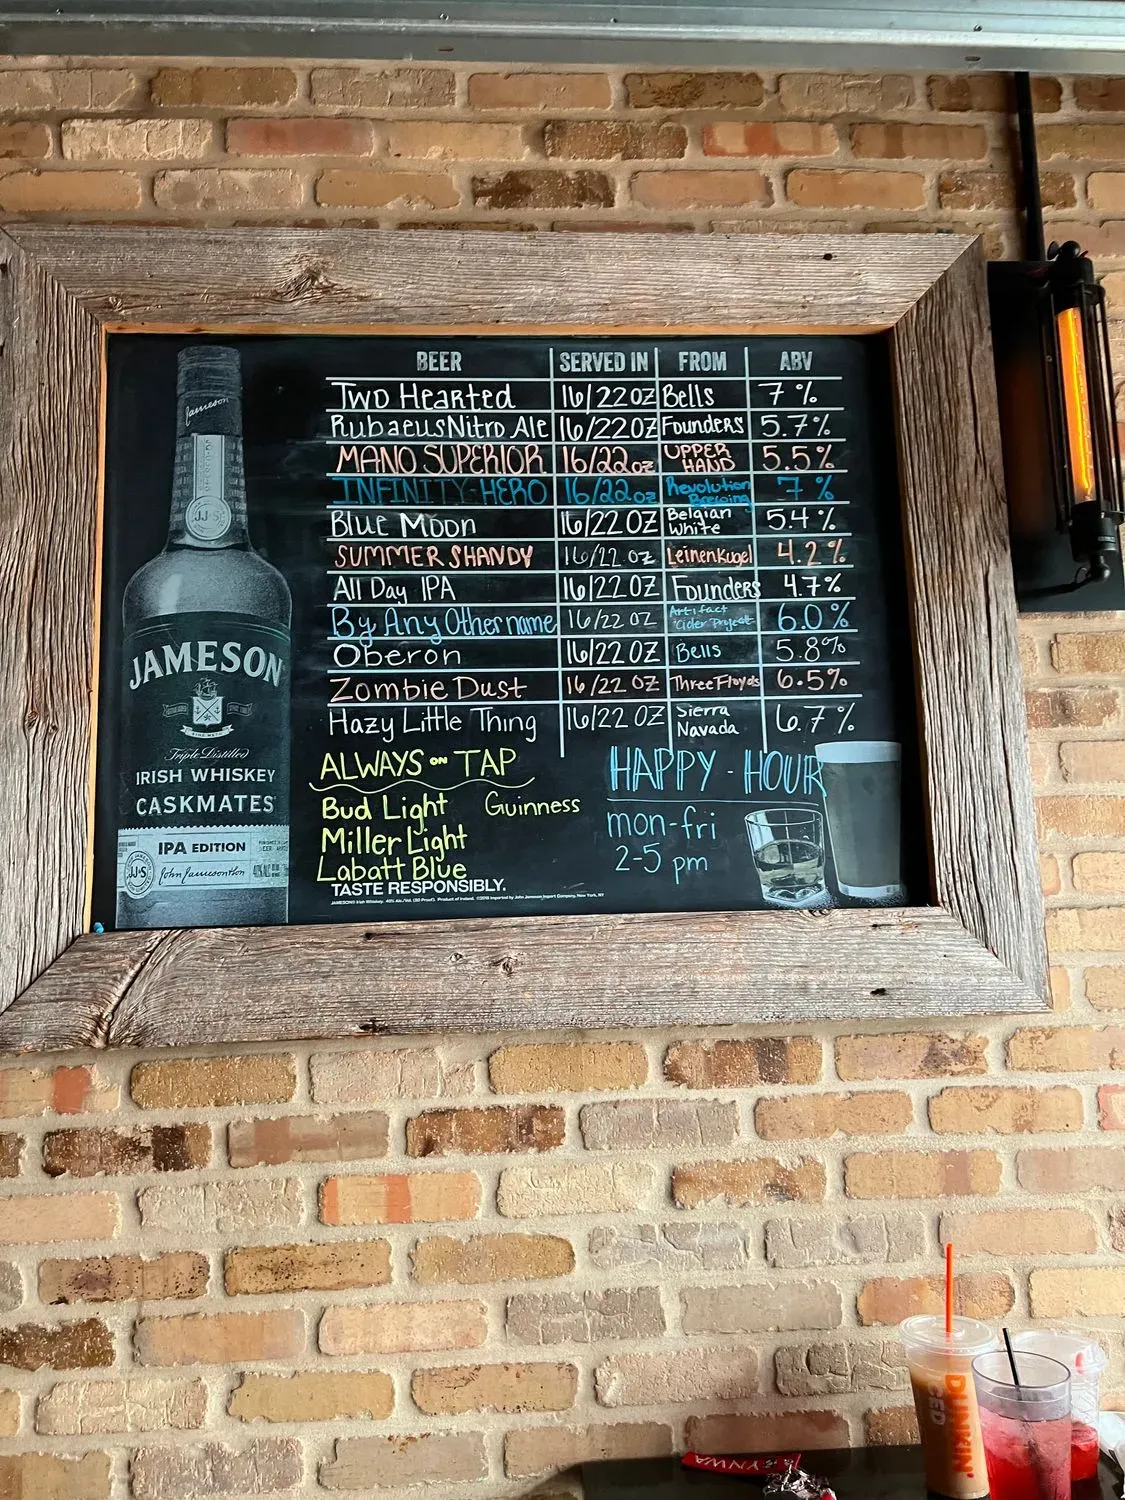 BEER SERVED IN FROM ABV
Two Hearted 16/22 oz Bells 7 %
Rubaeus Nitro Ale 16/22 oz Founders 5.7%
MANO SUPERIOR 16/22 oz UPPER HAND 5.5%
INFINITY-HERO 16/22 oz Revolution Brewing 7 %
Blue Moon 16/22 OZ Belgian White 5.4 %
SUMMER SHANDY 16/22 OZ Leinenkugel 4.2%
All Day IPA 16/22 OZ Founders 4.7%
By Any Other name 16/22 OZ Artifact Cider Project 6.0%
Oberon 16/22 OZ Bells 5.8%
Zombie Dust 16/22 OZ Three Floyds 6.5%
Hazy Little Thing 16/22 OZ Sierra Navada 6.7 %
ALWAYS ON TAP
Bud Light Guinness
Miller Light
Labatt Blue
TASTE RESPONSIBLY.
HAPPY-HOUR
mon-fri
2-5 pm
Jameson
JJ&S
JAMESON
Triple Distilled
IRISH WHISKEY
CASKMATES
IPA EDITION
John Jameson & Son
JJ&S
DUNKIN'
ICED